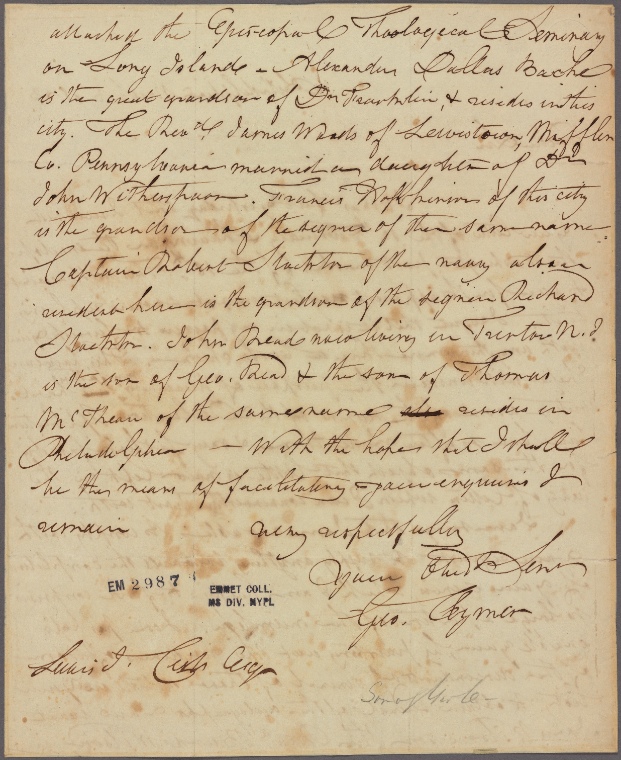 attached the Episcopal Theological Seminary
on Long Island - Alexander Dallas Bache
is the great grandson of Dr Franklin, & resides in this
city. The Revd James Woods of Lewistown, Mifflin
Co. Pennsylvania married a daughter of Dr
John Witherspoon. Francis Hopkinson of this city
is the grandson of the signer of the same name.
Captain Robert Stockton of the navy also a
resident here is the grandson of the signer Richard
Stockton. John Read now living in Trenton N. J
is the son of Geo. Read & the son of Thomas
McKean of the same name resides in
Philadelphia — With the hope that I shall
be the means of facilitating your enquiries I
remain very respectfully
Your Obdt Servt
Geo. Clymer
EM 2987
EMMET COLL.
MS DIV. NYPL
Lewis J. Cist Esqr
Son of